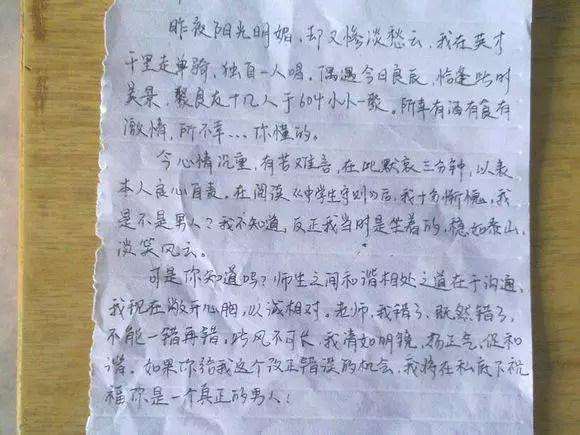 昨夜阳光明媚，却又惨淡愁云，我在英才
千里走单骑，独自一人喝。偶遇今日良辰，恰逢此时
美景，聚良友十几人于604小小一聚。所幸有酒有食有
激情，所不幸…你懂的。
今心情沉重，有苦难言，在此默哀三分钟，以表
本人良心自责。在阅读《中学生守则》后，我十分惭愧，我
是不是男人？我不知道，反正我当时是坐着的，稳如泰山，
谈笑风云。
可是你知道吗？师生之间和谐相处之道在于沟通，
我现在敞开心胸，以诚相对。老师，我错了，既然错了，
不能一错再错，此风不可长，我清如明镜，扬正气，促和
谐。如果你给我这个改正错误的机会，我将在私底下祝
福你是一个真正的男人！